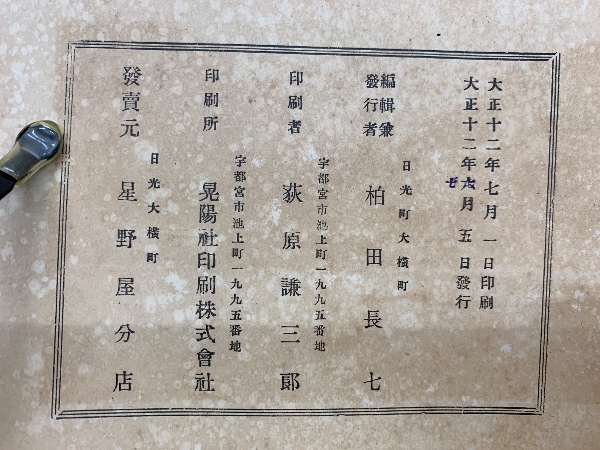 大正十二年七月一日印刷
大正十二年七月五日發行
編輯兼
發行者
日光町大横町
柏田長七
印刷者
宇都宮市池上町一九九五番地
荻原謙三郎
印刷所
宇都宮市池上町一九九五番地
晃陽社印刷株式會社
發賣元
日光大横町
星野屋分店